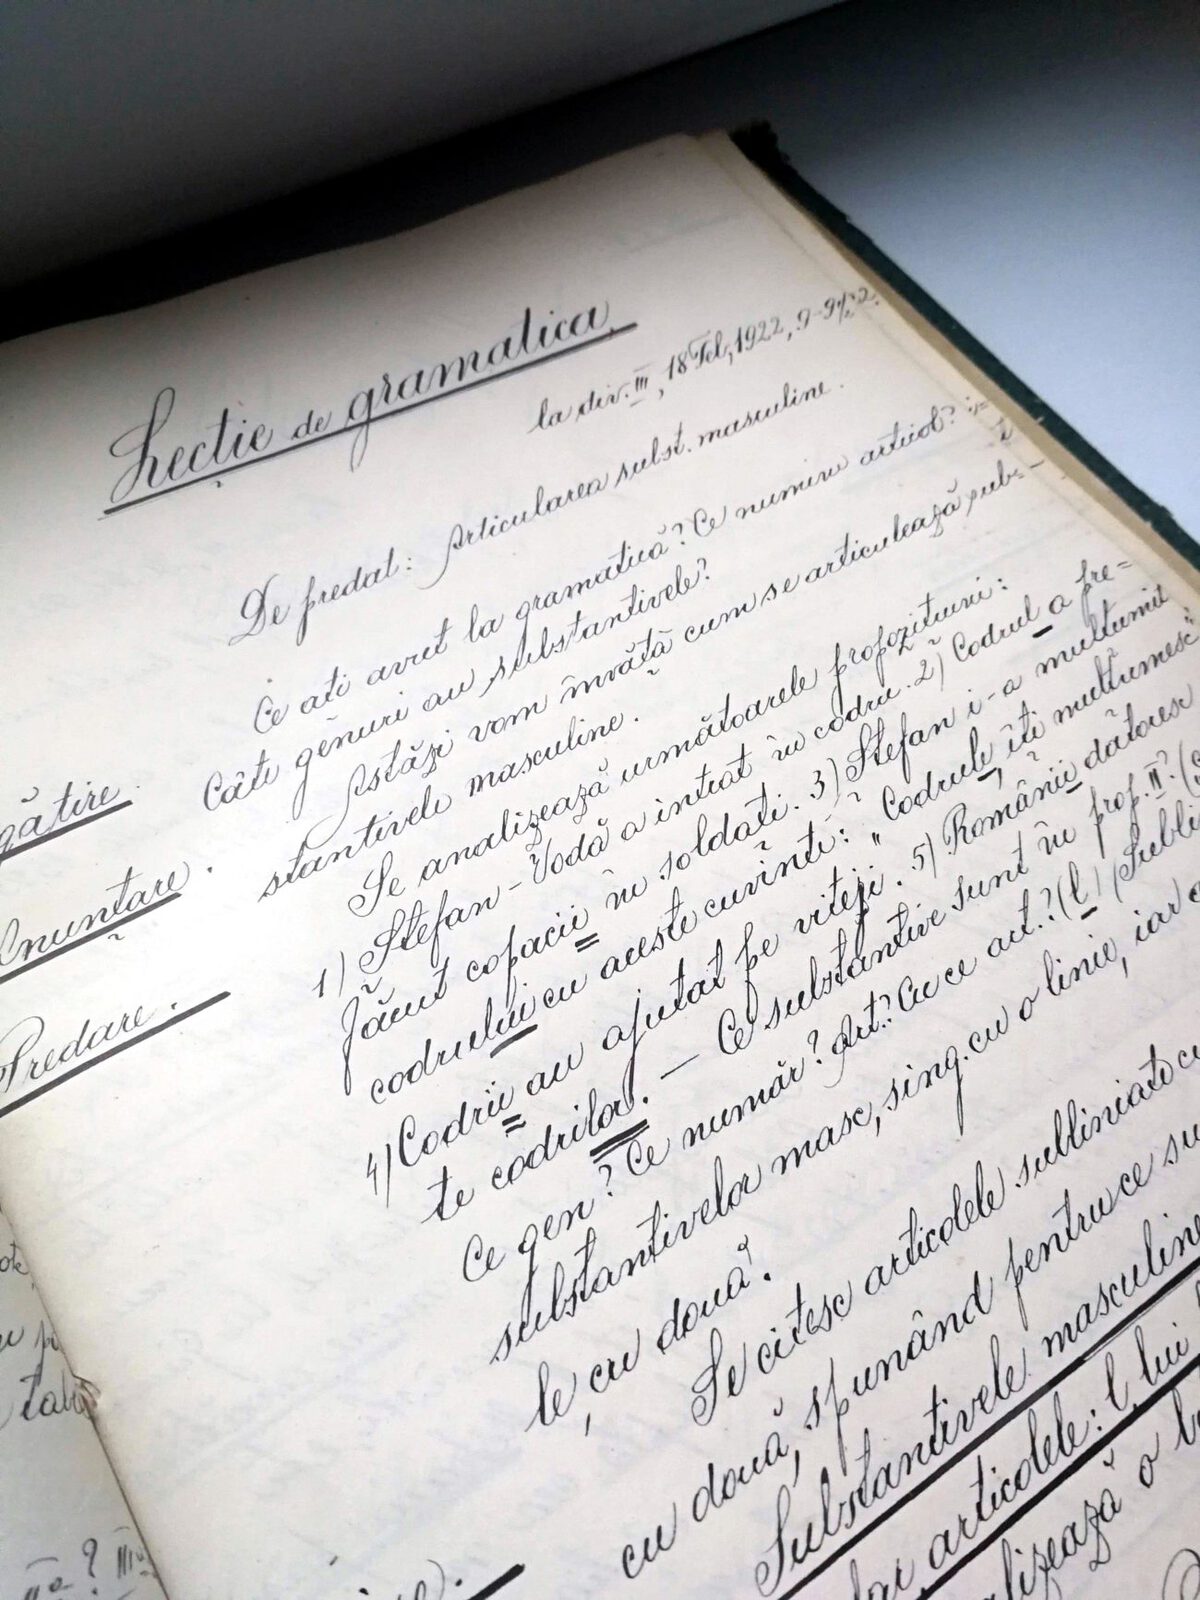 Lecție de gramatica.
la div. III, 18 Feb, 1922, 9-9½
De predat: Articularea subst. masculine.
Ce ați avut la gramatică? Ce numim articol?
Câte genuri au substantivele?
gătire.
Astăzi vom învăță cum se articulează sub-
stantivele masculine.
nunțare.
Se analizează următoarele propozițiuni:
Predare.
1) Ștefan-Vodă a intrat în codru. 2) Codrul a pre=
făcut copacii în soldați. 3) Ștefan i-a mulțumit
codrului cu aceste cuvinte: "Codrule, îți mulțumesc"
4) Codrii au ajutat pe viteji. 5) Românii datoresc
te codrilor. — Ce substantive sunt în prop. II? (
Ce gen? Ce număr? Art.? Cu ce art.? (l) (Subli
substantivelor masc, sing. cu o linie, iar
le, cu două.
Se citesc articolele subliniate cu
cu două, spunând pentru ce su
Substantivele masculine
articolele: l lui
alizează o